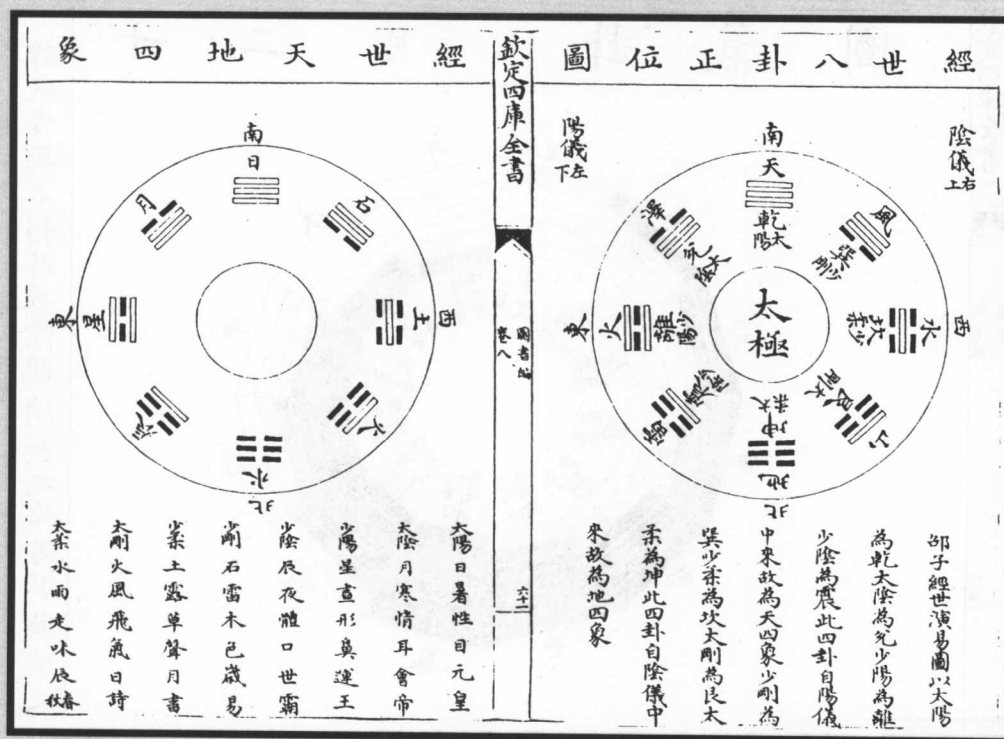 經世八卦正位圖
陰儀右上
陽儀左下
南
天
乾太陽
風
巽少剛
西
水
坎少柔
山
艮太剛
北
地
坤太柔
雷
震少陰
東
火
離少陽
澤
兌太陰
太極
邵子經世演易圖以太陽
為乾太陰為兌少陽為離
少陰為震此四卦自陽儀
中來故為天四象少剛為
巽少柔為坎太剛為艮太
柔為坤此四卦自陰儀中
來故為地四象
欽定四庫全書
圖書編
卷八
六十二
經世天地四象
南
日
石
西
土
火
北
水
辰
東
星
月
太陽日暑性目元皇
太陰月寒情耳會帝
少陽星晝形鼻運王
少陰辰夜體口世霸
少剛石雷木色歲易
少柔土露草聲月書
太剛火風飛氣日詩
太柔水雨走味辰春秋